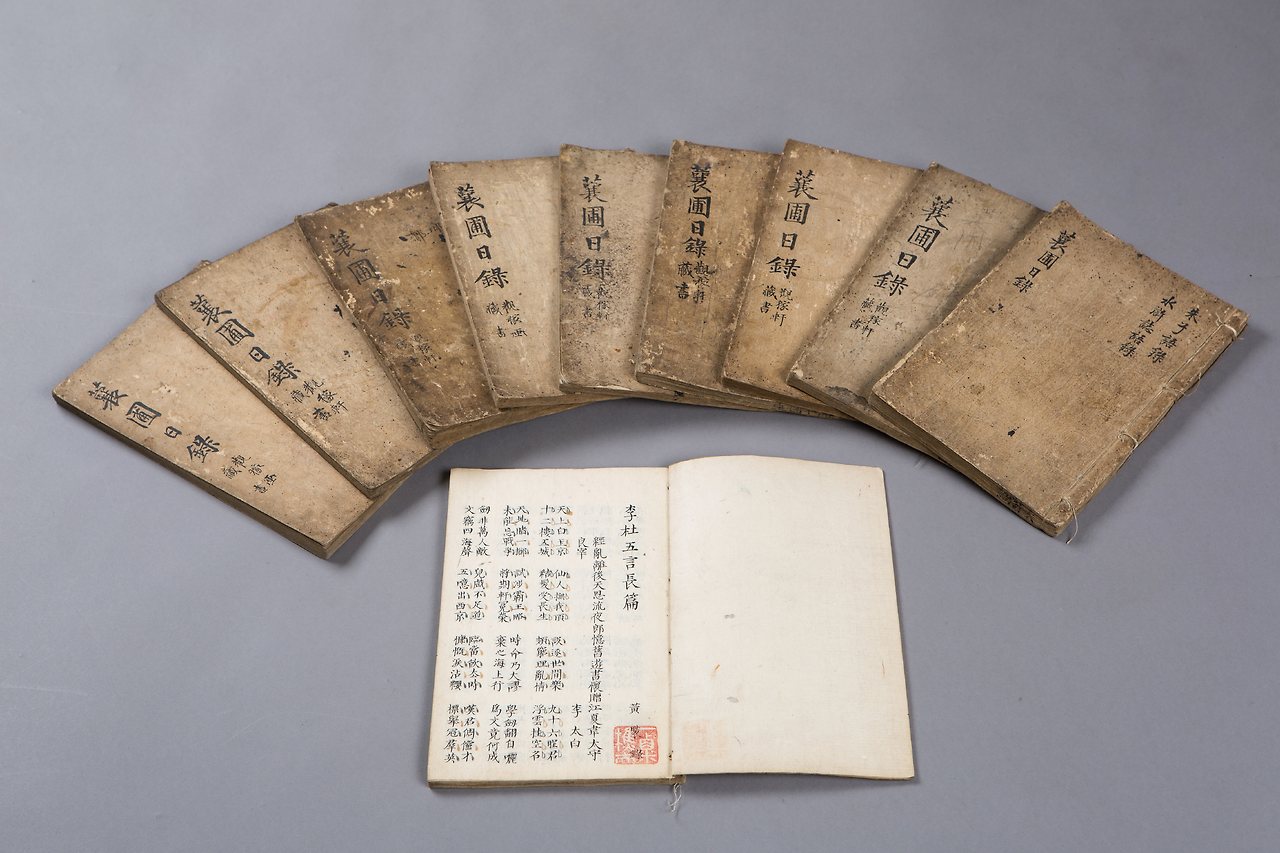 蓑圃日錄
觀稼軒
藏書
蓑圃日錄
觀稼軒
藏書
蓑圃日錄
蓑圃日錄
觀稼軒
藏書
蓑圃日錄
觀稼軒
藏書
蓑圃日錄
觀稼軒
藏書
蓑圃日錄
觀稼軒
藏書
蓑圃日錄
觀稼軒
藏書
朱子語錄
蓑圃日錄
李杜五言長篇
經亂離後天恩流夜郎憶舊遊書懷贈江夏韋太守
良宰 李太白
天上白玉京 仙人撫我頂 誤逐世間樂 九十六聖君
十二樓五城 結髮受長生 頗窮理亂情 浮雲挂空名
天地賭一擲 試涉霸王略 時命乃大謬 學劍翻自哂
未能忘戰爭 將期軒冕榮 棄之海上行 爲文竟何成
劍非萬人敵 兒戲不足道 臨當欲去時 嘆君倜儻才
文竊四海聲 五噫出西京 慷慨淚沾纓 標舉冠羣英